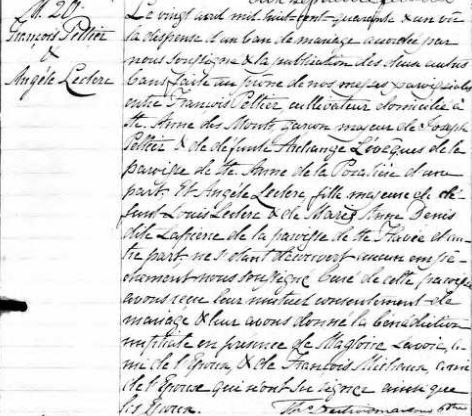 M. 20.
François Peltier
&
Angèle Leclerc
Le vingt avril mil huit-cent-quarante & un vu
la dispense d'un ban de mariage accordée par
nous soussigné & la publication des deux autres
bans faite au prône de nos messes paroissiales
entre François Peltier cultivateur domicilié à
Ste. Anne des Monts, garçon majeur de Joseph
Peltier & de défunte Archange Lévèques de la
paroisse de Ste Anne de la Pocatière d'une
part. Et Angèle Leclerc fille majeure de dé-
funt Louis Leclerc & de Marie Anne Denis
dite Lapierre de la paroisse de Ste Flavie d'au-
tre part, ne s'étant découvert aucun empê-
chement nous soussigné Curé de cette paroisse
avons reçu leur mutuel consentement de
mariage & leur avons donné la bénédiction
nuptiale en présence de Magloire Lavoie, a-
mi de l'Epoux, & de François Michaux, ami
de l'Epouse qui n'ont su signer ainsi que
les Epoux.